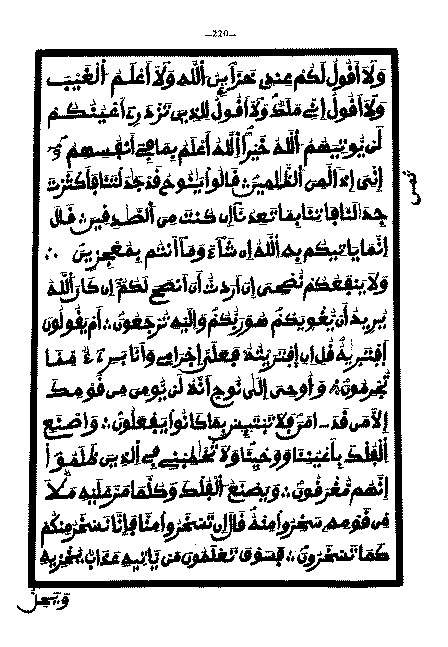 –220–
وَلَا أَقُولُ لَكُمْ عِندِي خَزَائِنُ اللَّهِ وَلَا أَعْلَمُ الْغَيْبَ
وَلَا أَقُولُ إِنِّي مَلَكٌ وَلَا أَقُولُ لِلَّذِينَ تَزْدَرِي أَعْيُنُكُمْ
لَن يُؤْتِيَهُمُ اللَّهُ خَيْرًا اللَّهُ أَعْلَمُ بِمَا فِي أَنفُسِهِمْ
إِنِّي إِذًا لَّمِنَ الظَّالِمِينَ ∴ قَالُوا يَا نُوحُ قَدْ جَادَلْتَنَا فَأَكْثَرْتَ
جِدَالَنَا فَأْتِنَا بِمَا تَعِدُنَا إِن كُنتَ مِنَ الصَّادِقِينَ ∴ قَالَ
إِنَّمَا يَأْتِيكُم بِهِ اللَّهُ إِن شَاءَ وَمَا أَنتُم بِمُعْجِزِينَ ∴
وَلَا يَنفَعُكُمْ نُصْحِي إِنْ أَرَدتُّ أَنْ أَنصَحَ لَكُمْ إِن كَانَ اللَّهُ
يُرِيدُ أَن يُغْوِيَكُمْ هُوَ رَبُّكُمْ وَإِلَيْهِ تُرْجَعُونَ ∴ أَمْ يَقُولُونَ
افْتَرَاهُ قُلْ إِنِ افْتَرَيْتُهُ فَعَلَيَّ إِجْرَامِي وَأَنَا بَرِيءٌ مِّمَّا
تُجْرِمُونَ ∴ وَأُوحِيَ إِلَى نُوحٍ أَنَّهُ لَن يُؤْمِنَ مِن قَوْمِكَ
إِلَّا مَن قَدْ آمَنَ فَلَا تَبْتَئِسْ بِمَا كَانُوا يَفْعَلُونَ ∴ وَاصْنَعِ
الْفُلْكَ بِأَعْيُنِنَا وَوَحْيِنَا وَلَا تُخَاطِبْنِي فِي الَّذِينَ ظَلَمُوا
إِنَّهُم مُّغْرَقُونَ ∴ وَيَصْنَعُ الْفُلْكَ وَكُلَّمَا مَرَّ عَلَيْهِ مَلَأٌ
مِّن قَوْمِهِ سَخِرُوا مِنْهُ قَالَ إِن تَسْخَرُوا مِنَّا فَإِنَّا نَسْخَرُ مِنكُمْ
كَمَا تَسْخَرُونَ ∴ فَسَوْفَ تَعْلَمُونَ مَن يَأْتِيهِ عَذَابٌ يُخْزِيهِ
وَيَحِلُّ